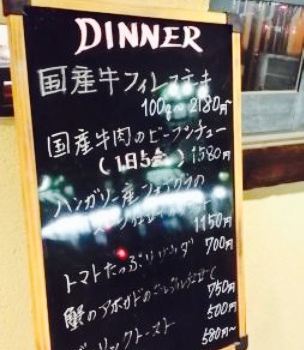 DINNER
国産牛フィレステーキ
100g〜 2180円〜
国産牛肉のビーフシチュー
(1日5食) 1580円
ハンガリー産フォアグラの
1150円
トマトたっぷりサラダ 700円
蟹のアボカドの 750円
500円
ガーリックトースト 580円〜